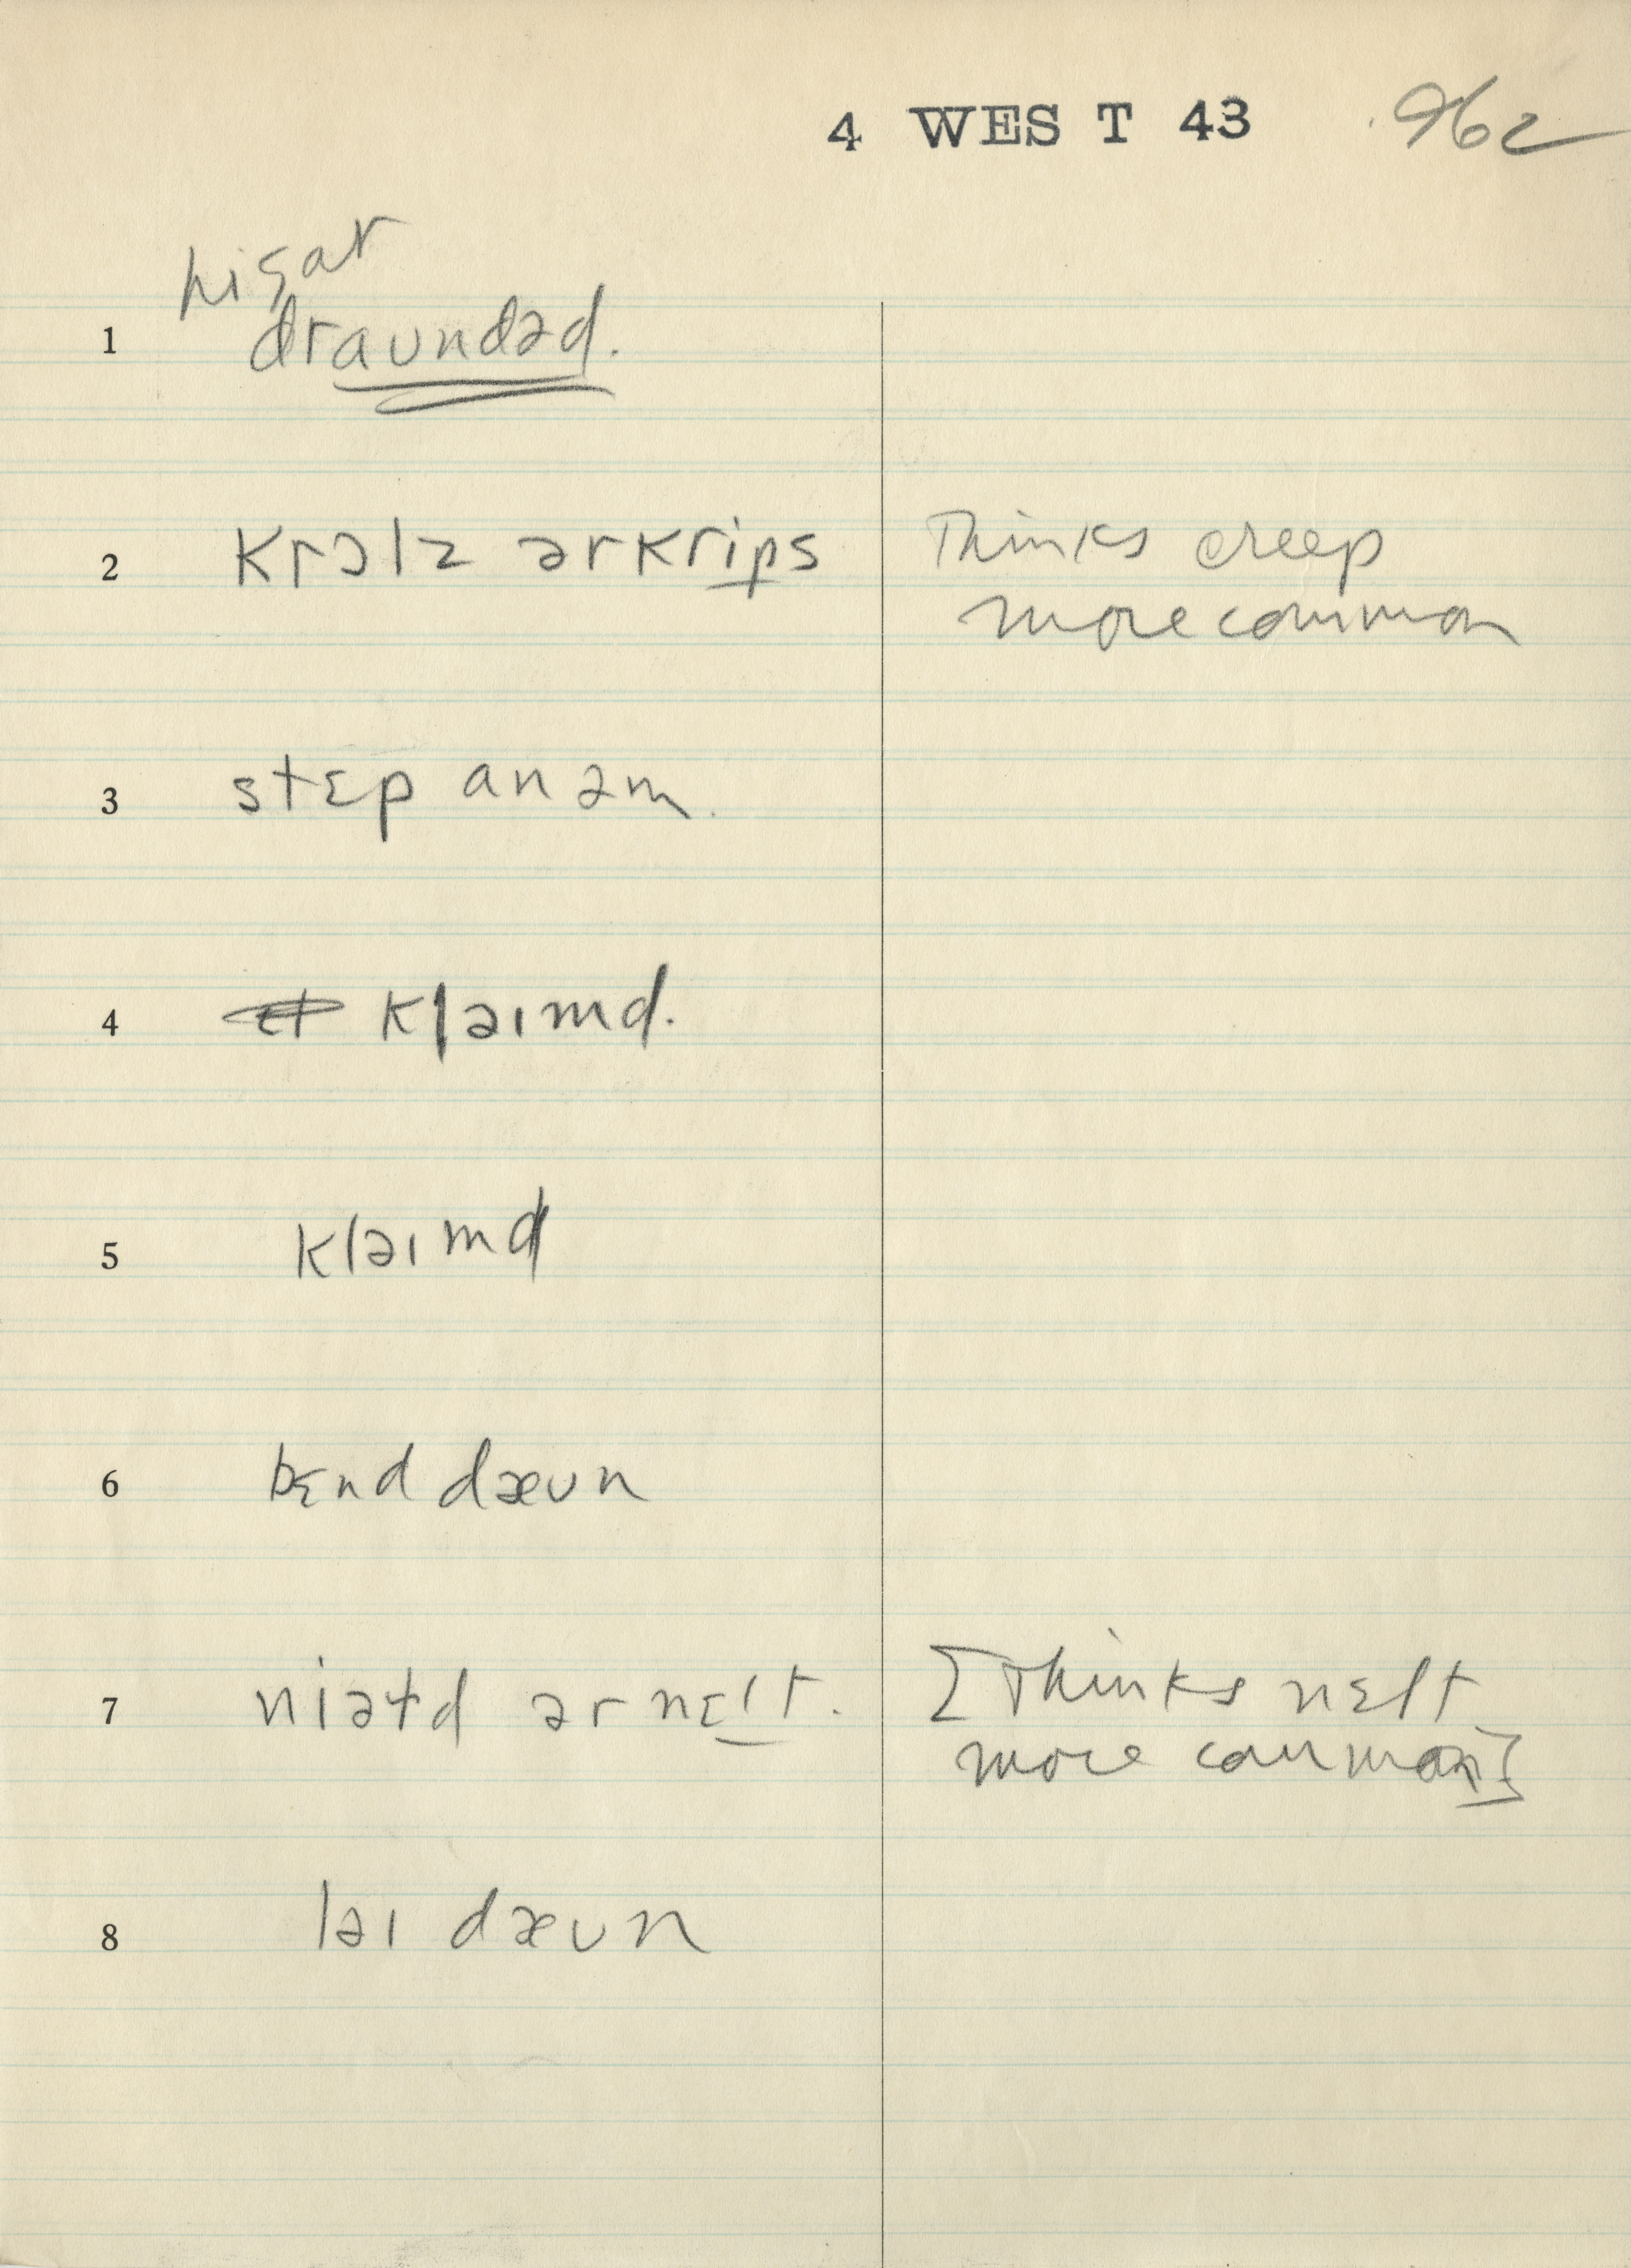 4 WEST 43 962
hi gat
1 draundəd.
2 krɔlz ər krips Thinks creep
more common
3 stɛp an əm.
4 kləɪmd.
5 kləɪmd
6 bɛnd dæʊn
7 niəɫd ər nɛlt. [Thinks nɛlt
more common]
8 ləɪ dæʊn